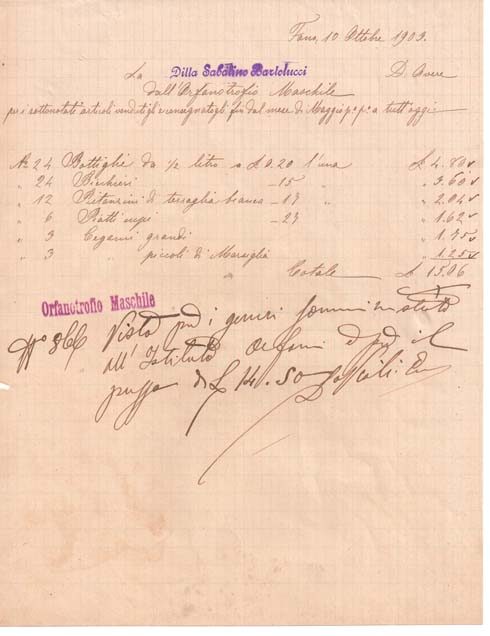 Fano, 10 Ottobre 1903.
La Ditta Sabatino Bartolucci D. Avere
dall'Orfanotrofio Maschile
per i sottonotati articoli vendutigli e consegnatogli fin dal mese di Maggio p.º p.º a tutt'oggi
Nº 24 Bottiglie da 1/2 litro a £ 0.20 l'una £ 4.80
" 24 Bicchieri -15 " " 3.60
" 12 di terraglia bianca -17 " " 2.04
" 6 Piatti cupi -27 " 1.62
" 3 Tegami grandi " 1.75
" 3 " piccoli di Marsiglia " 1.25
Totale £ 15.06
Orfanotrofio Maschile
Nº 366 Visto per i generi somministrati
all'Istituto Orfani e per il
di £ 14.50